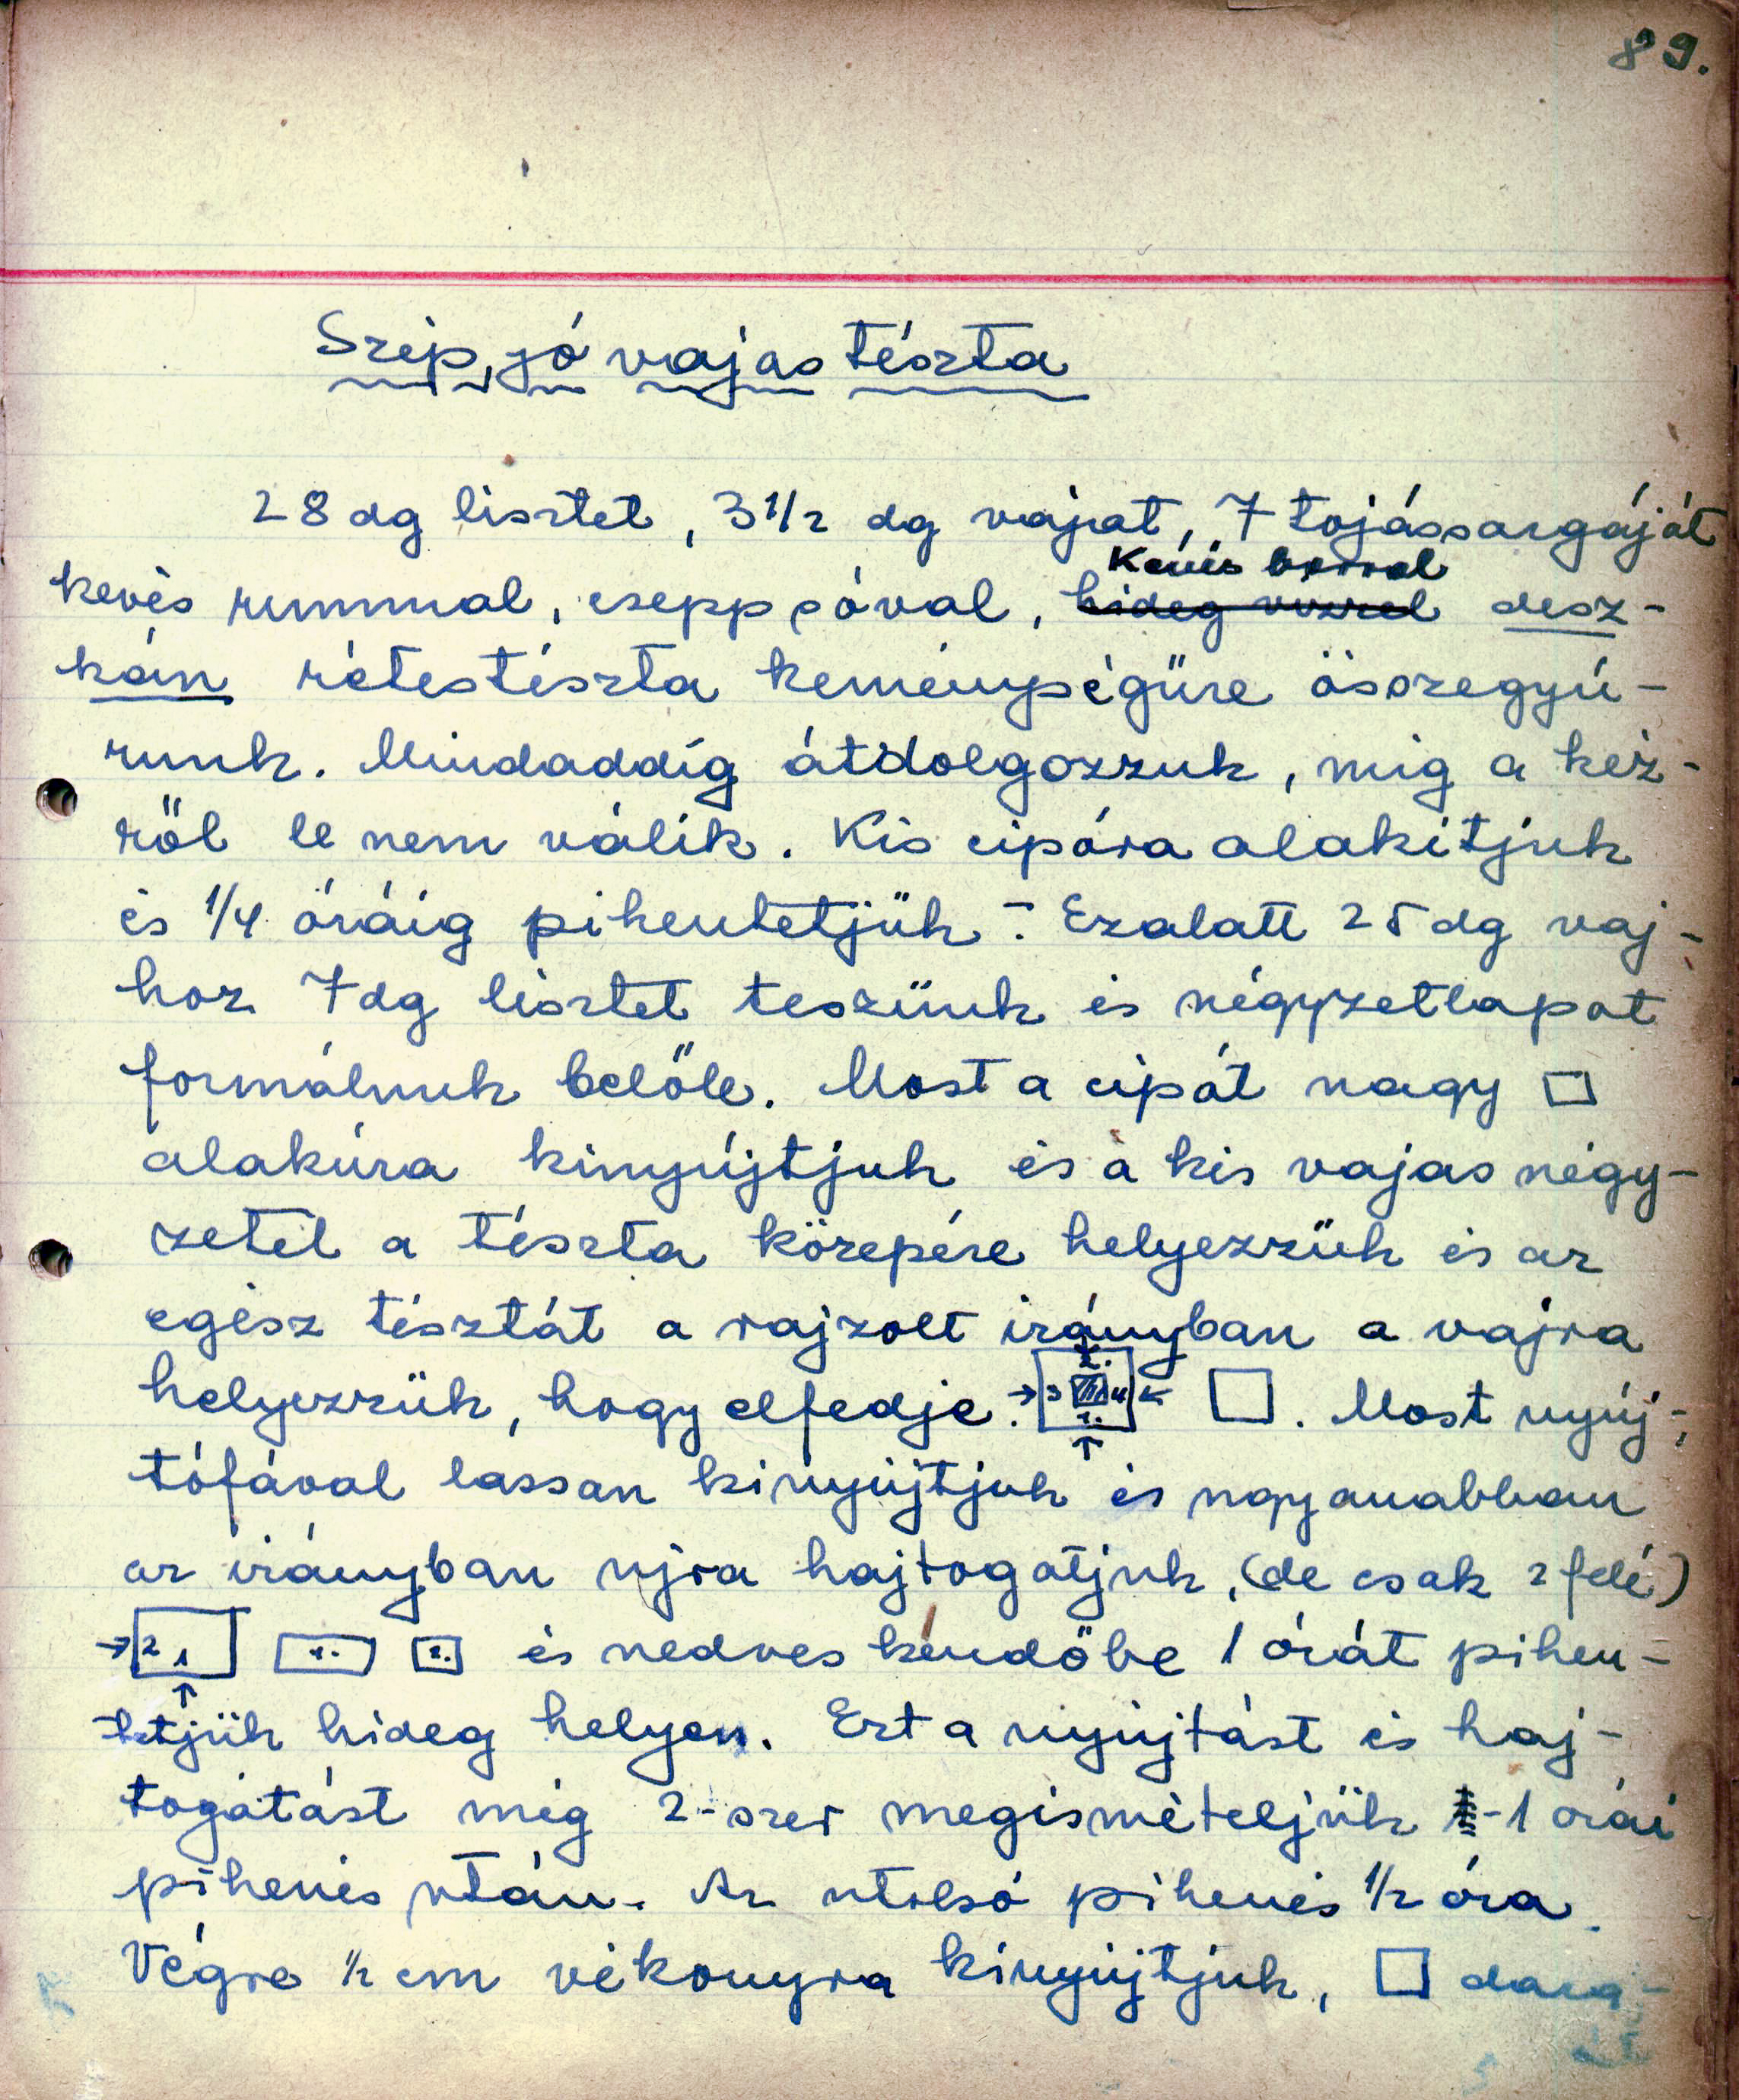 89.
Szép, jó vajas tészta
28 dg lisztet, 3 1/2 dg vajat, 7 tojássargáját
Kevés borral
kevés rummal, csepp sóval, hideg vizzel desz-
kán rétestészta keménységűre összegyú-
runk. Mindaddig átdolgozzuk, mig a kéz-
ről le nem válik. Kis cipóra alakítjuk
és 1/4 óráig pihentetjük. - Ezalatt 25 dg vaj-
hoz 7 dg lisztet teszünk és négyzetlapot
formálunk belőle. Most a cipót nagy □
alakúra kinyújtjuk és a kis vajas négy-
zetet a tészta közepére helyezzük és az
egész tésztát a rajzolt irányban a vajra
helyezzük, hogy elfedje. → 3 2. 4 1. ← ↑ □. Most nyúj-
tófával lassan kinyújtjuk és ugyanabban
az irányban ujra hajtogatjuk, (de csak 2 felé)
→ 2 1 ↑ 1. 2. és nedves kendőbe 1 órát pihen-
tetjük hideg helyen. Ezt a nyújtást és haj-
togatást még 2-szer megismételjük - 1 órai
pihenés után. Az utolsó pihenés 1/2 óra.
Végre 1/2 cm vékonyra kinyújtjuk, □ dara-